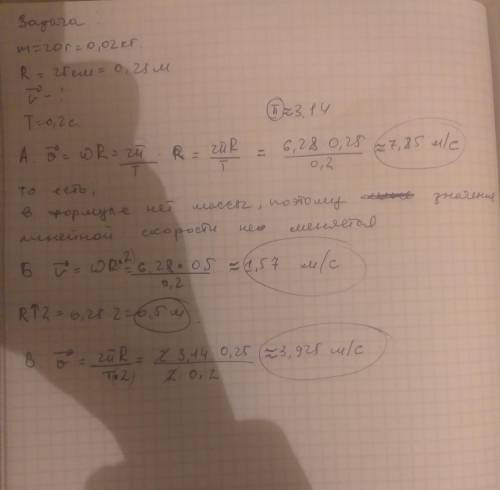 Задача
m=20г=0,02кг.
R=25см=0,25м
v⃗ - ?
T=0,2с.
π≈3,14
А. v⃗ = ωR = 2π/T · R = 2πR/T = 6,28 0,25/0,2 ≈7,85 м/с
то есть,
в формуле нет массы, поэтому значения
линейной скорости не меняется
Б. v⃗ = ωR·2 = 6,28·0,5/0,2 ≈ 1,57 м/с
R↑2 = 0,25 2 = 0,5 м.
В. v⃗ = 2πR/T·2 = 2 3,14 0,25/2 0,2 ≈3,925 м/с